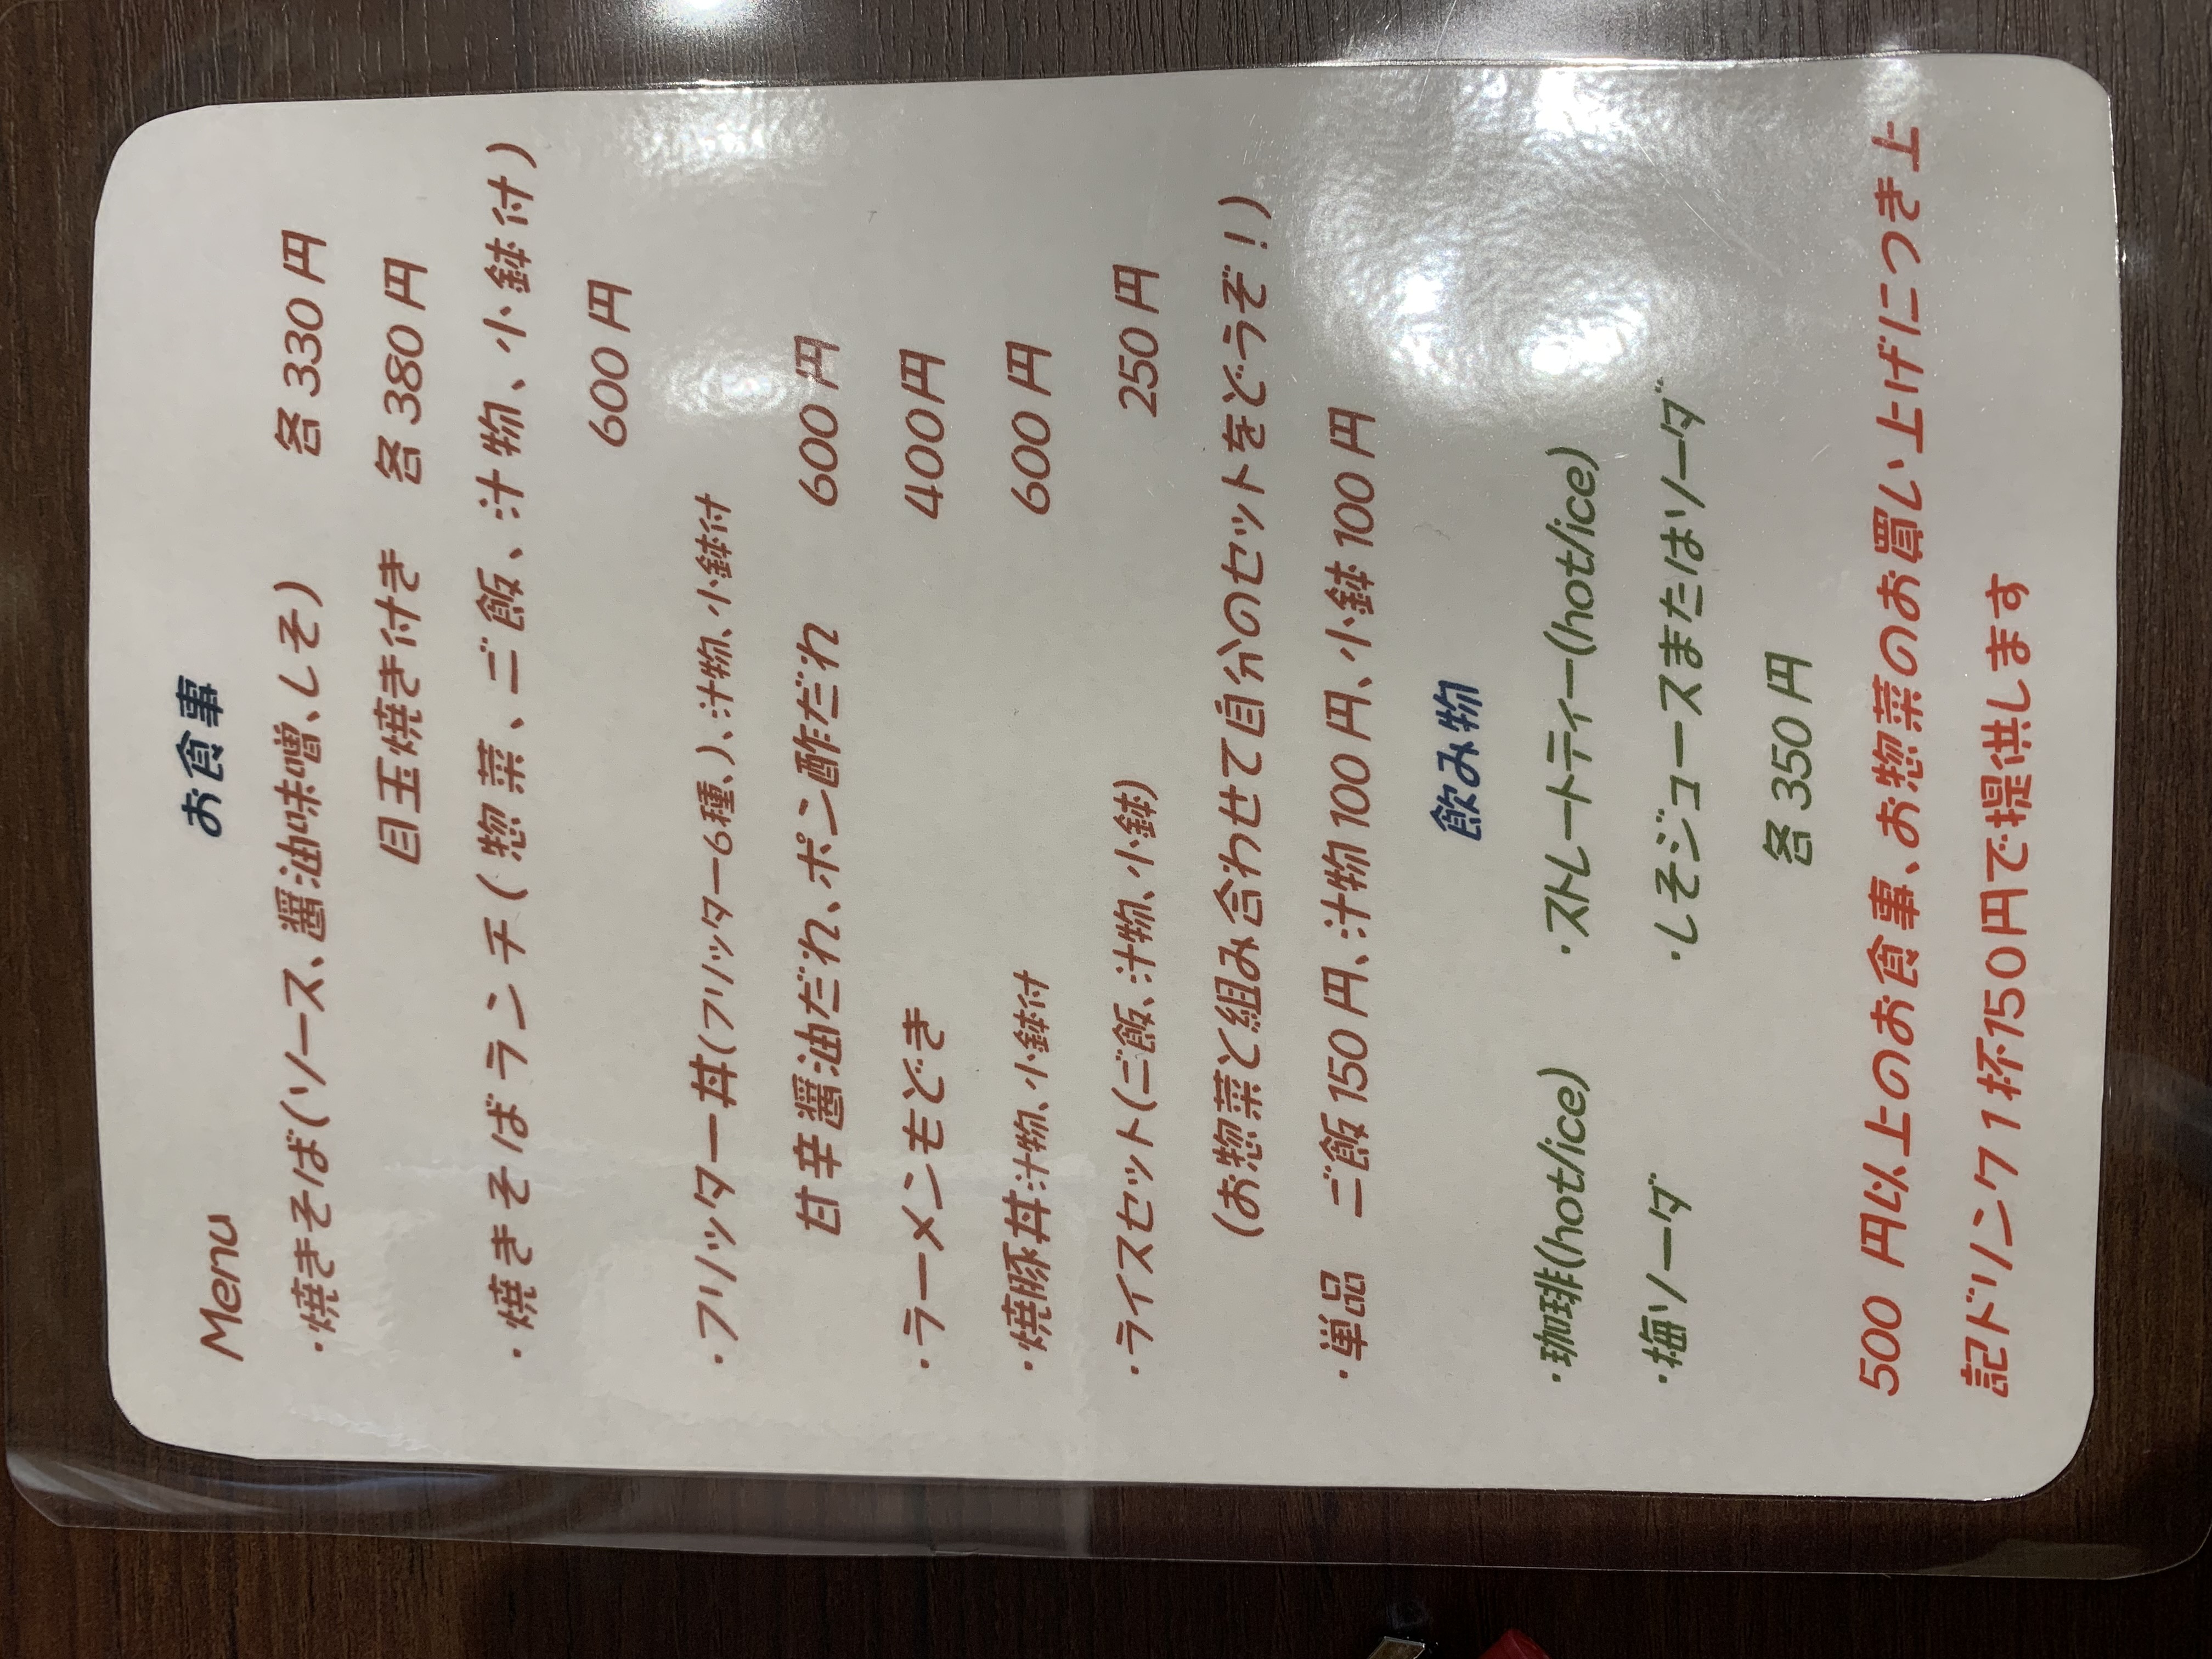 Menu お食事
・焼きそば(ソース、醤油味噌、しそ) 各330円
目玉焼き付き 各380円
・焼きそばランチ(惣菜、ご飯、汁物、小鉢付)
600円
・フリッター丼(フリッター6種、)、汁物、小鉢付
甘辛醤油だれ、ポン酢だれ 600円
・ラーメンもどき 400円
・焼豚丼汁物、小鉢付 600円
・ライスセット(ご飯、汁物、小鉢) 250円
(お惣菜と組み合わせて自分のセットをどうぞ!)
・単品 ご飯150円、汁物100円、小鉢100円
飲み物
・珈琲(hot/ice) ・ストレートティー(hot/ice)
・梅ソーダ ・しそジュースまたはソーダ
各350円
500円以上のお食事、お惣菜のお買い上げにつき上
記ドリンク1杯150円で提供します